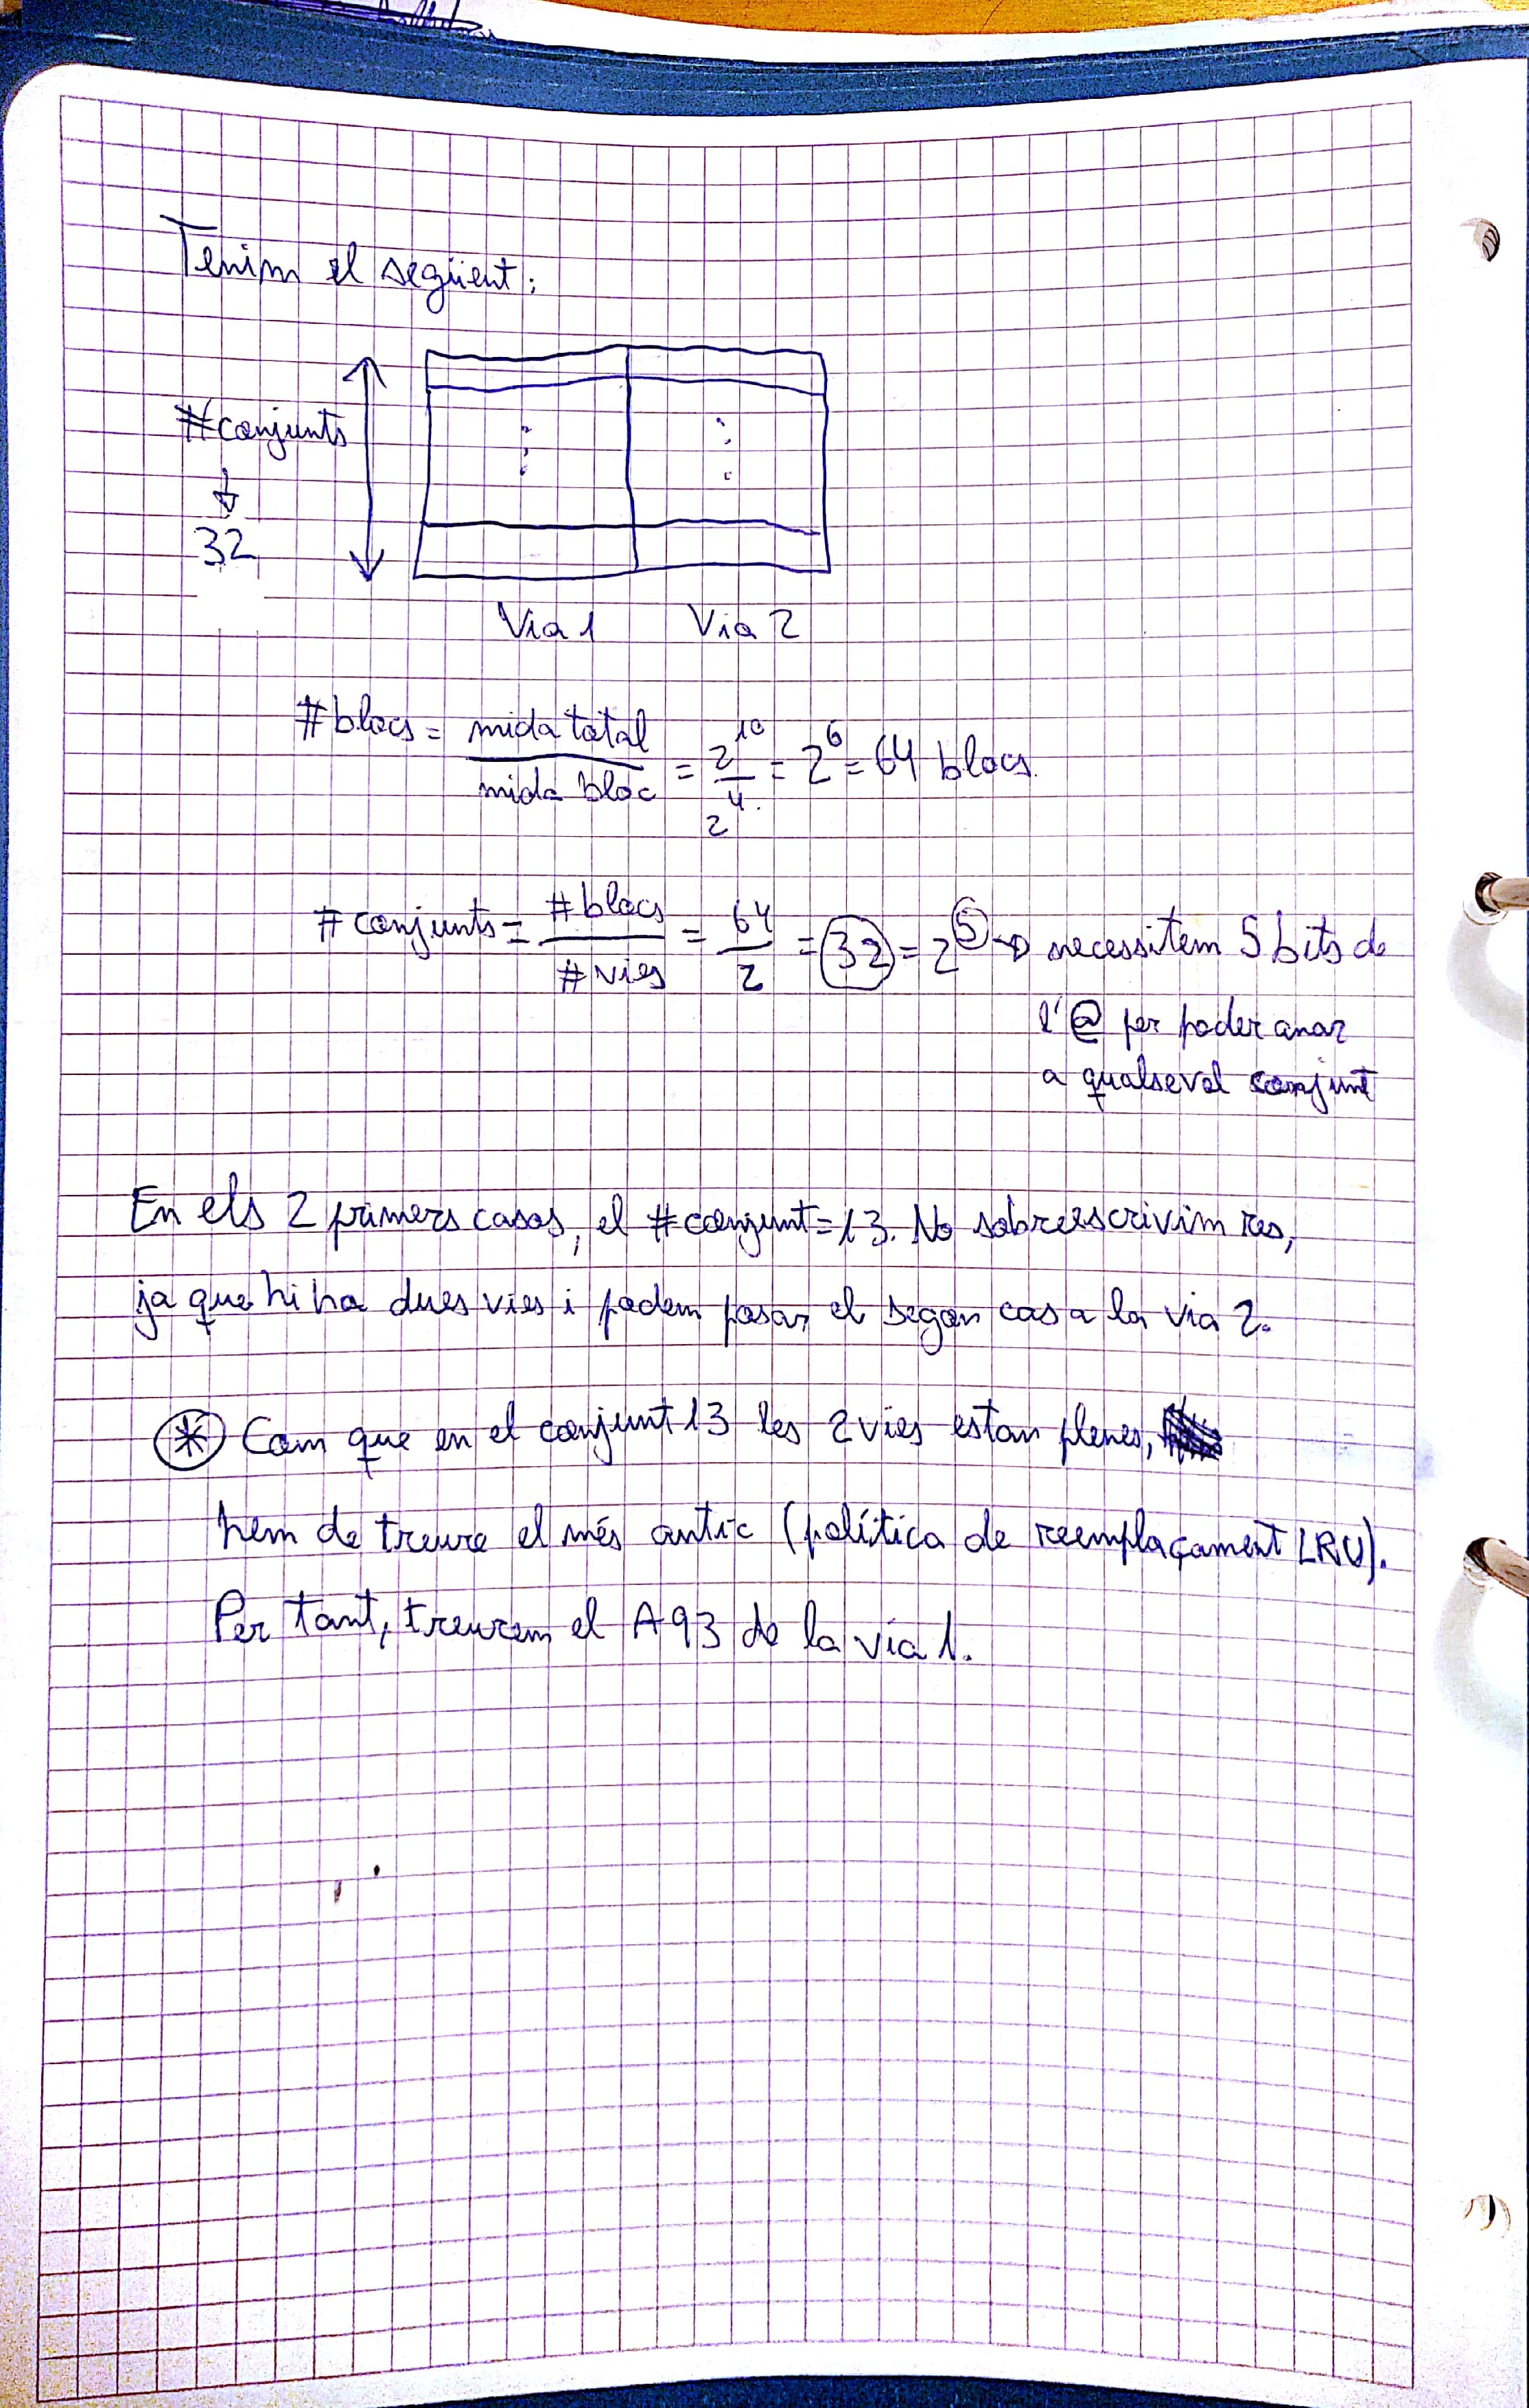 Tenim el següent:
#conjunts
↓
32
Via 1 Via 2
#blocs = mida total / mida bloc = 2^10 / 2^4 = 2^6 = 64 blocs.
#conjunts = #blocs / #vies = 64 / 2 = 32 = 2^5 → necessitem 5 bits de
l'@ per poder anar
a qualsevol conjunt
En els 2 primers casos, el #conjunt=13. No sobreescrivim res,
ja que hi ha dues vies i podem posar el segon cas a la via 2.
* Com que en el conjunt 13 les 2 vies estan plenes,
hem de treure el més antic (política de reemplaçament LRU).
Per tant, treurem el A93 de la via 1.